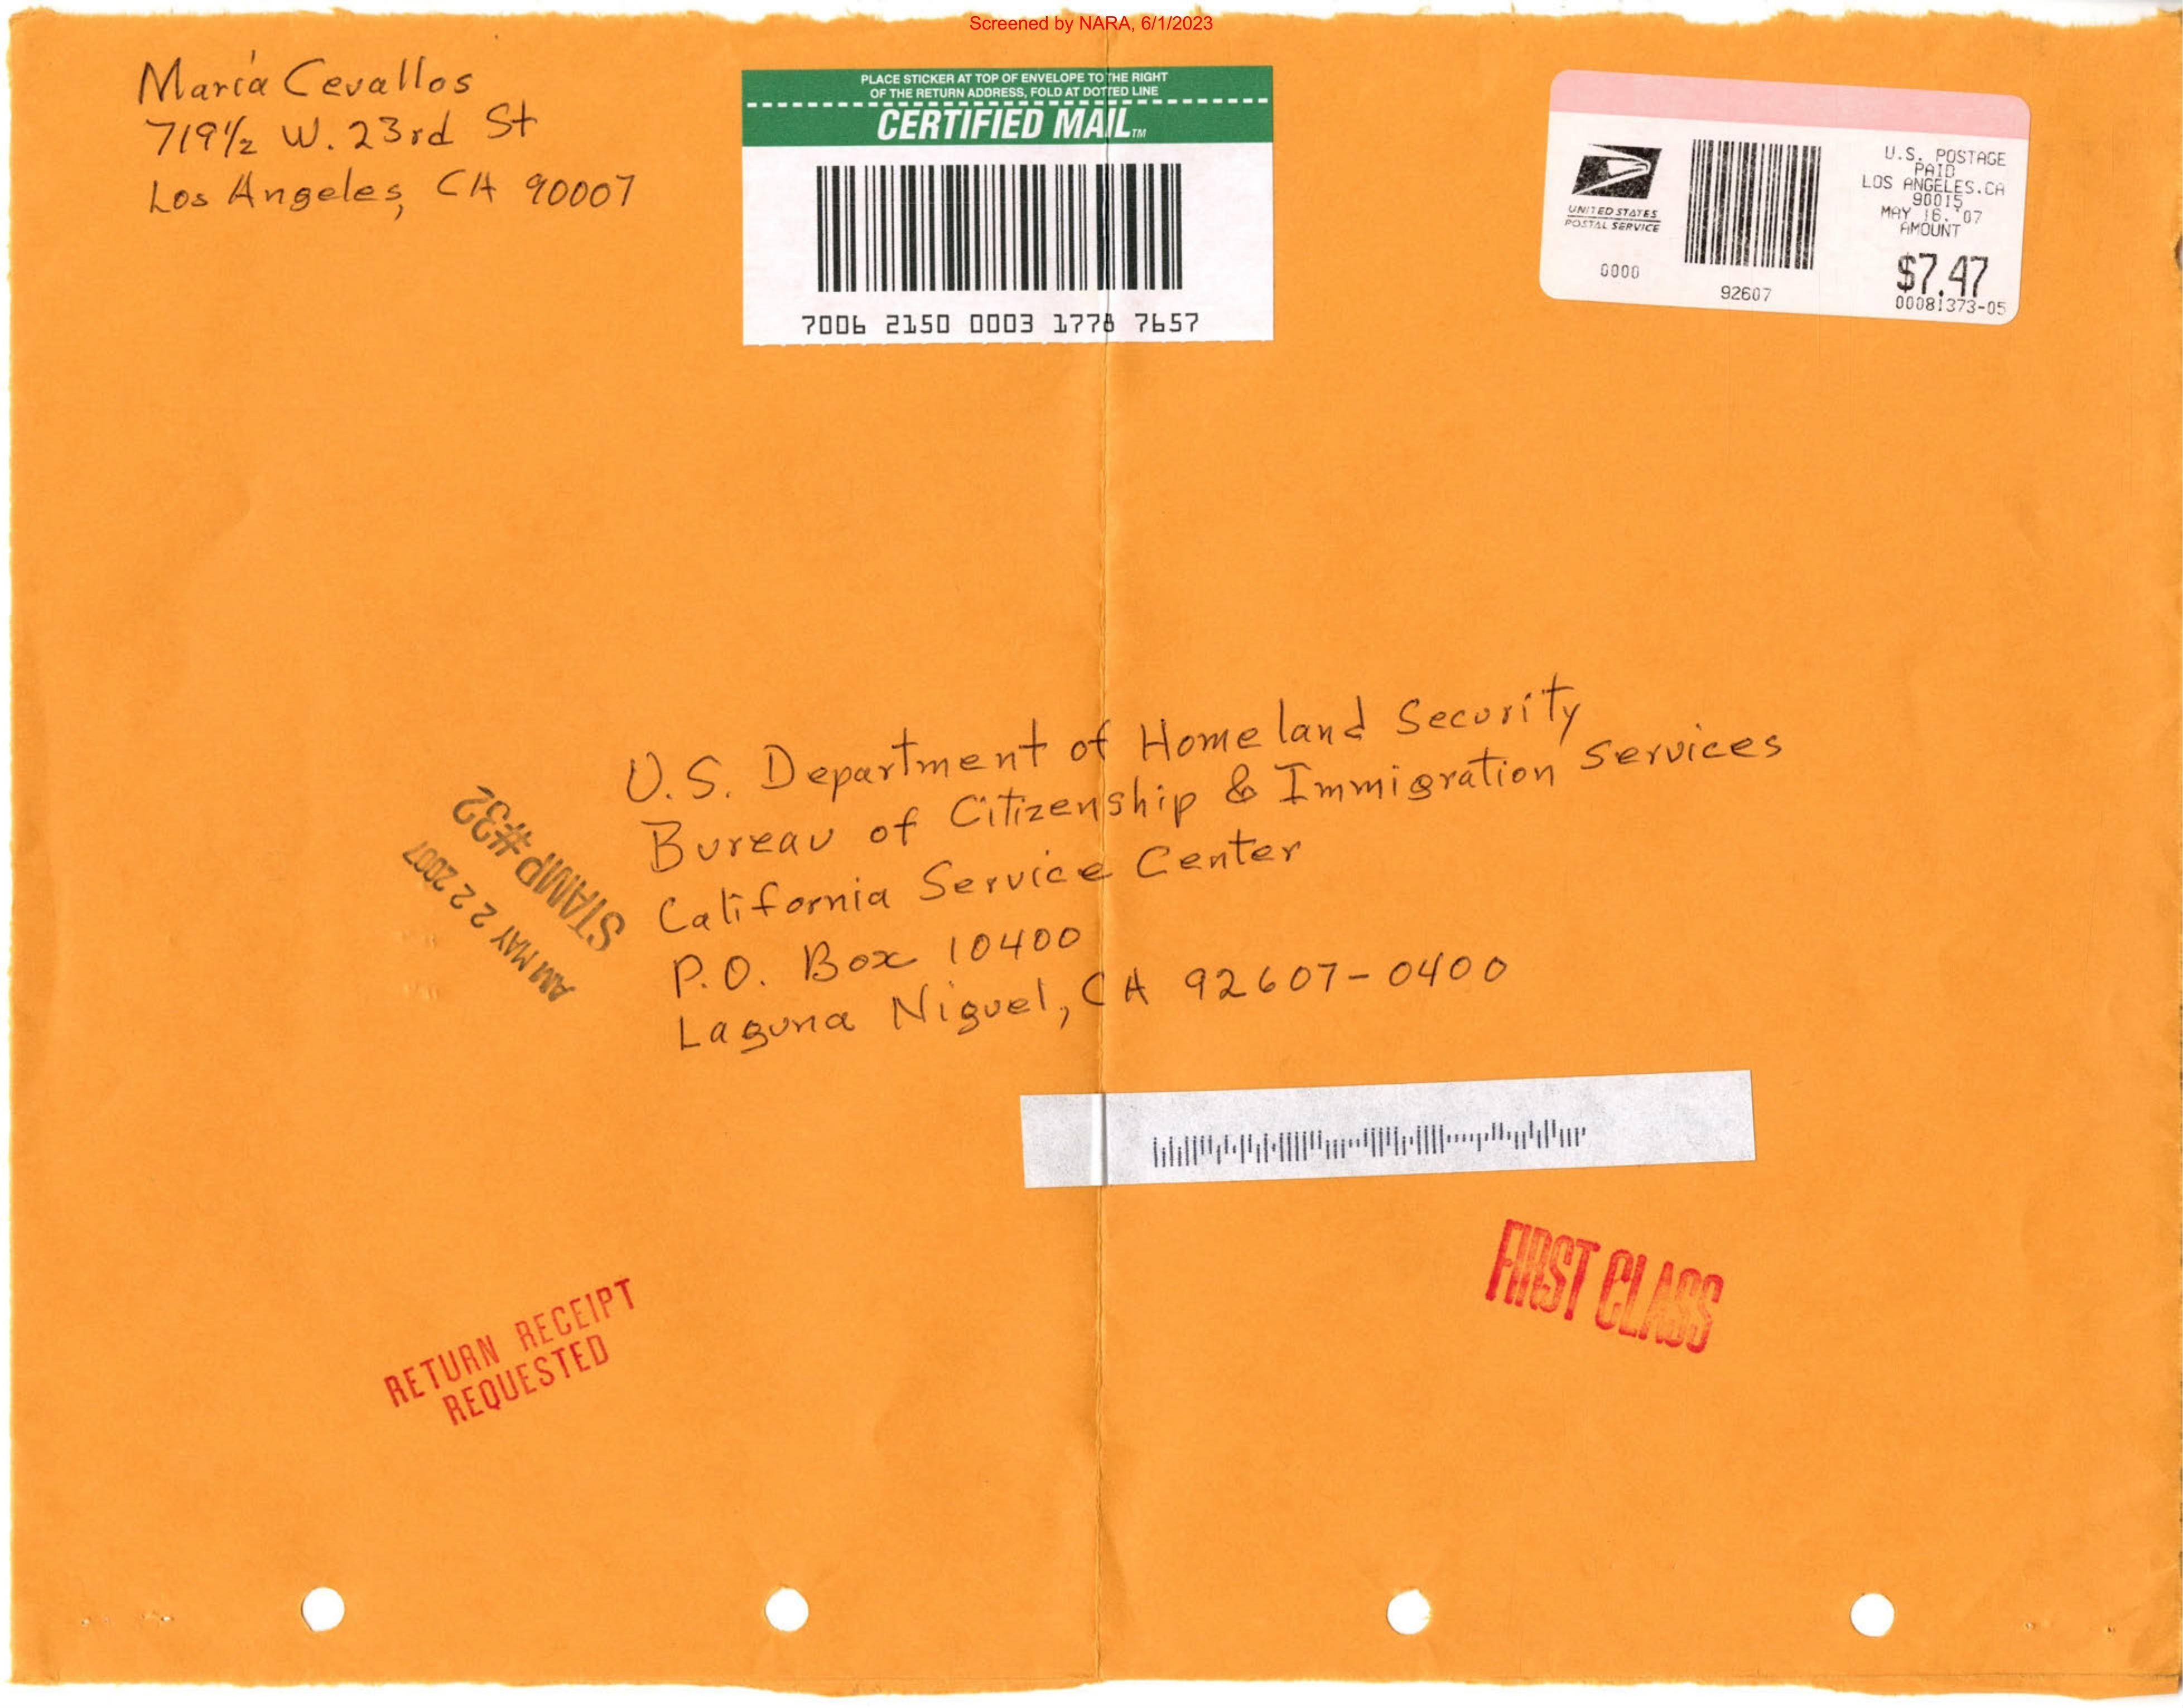 Screened by NARA, 6/1/2023
María Cevallos
719½ W. 23rd St
Los Angeles, CA 90007
PLACE STICKER AT TOP OF ENVELOPE TO THE RIGHT
OF THE RETURN ADDRESS, FOLD AT DOTTED LINE
CERTIFIED MAIL™
7006 2150 0003 1778 7657
UNITED STATES
POSTAL SERVICE
0000
92607
U.S. POSTAGE
PAID
LOS ANGELES.CA
90015
MAY 16. '07
AMOUNT
$7.47
00081373-05
U.S. Department of Homeland Security
Bureau of Citizenship & Immigration Services
California Service Center
P.O. Box 10400
Laguna Niguel, CA 92607-0400
STAMP #32
AM MAY 22 2007
RETURN RECEIPT
REQUESTED
FIRST CLASS